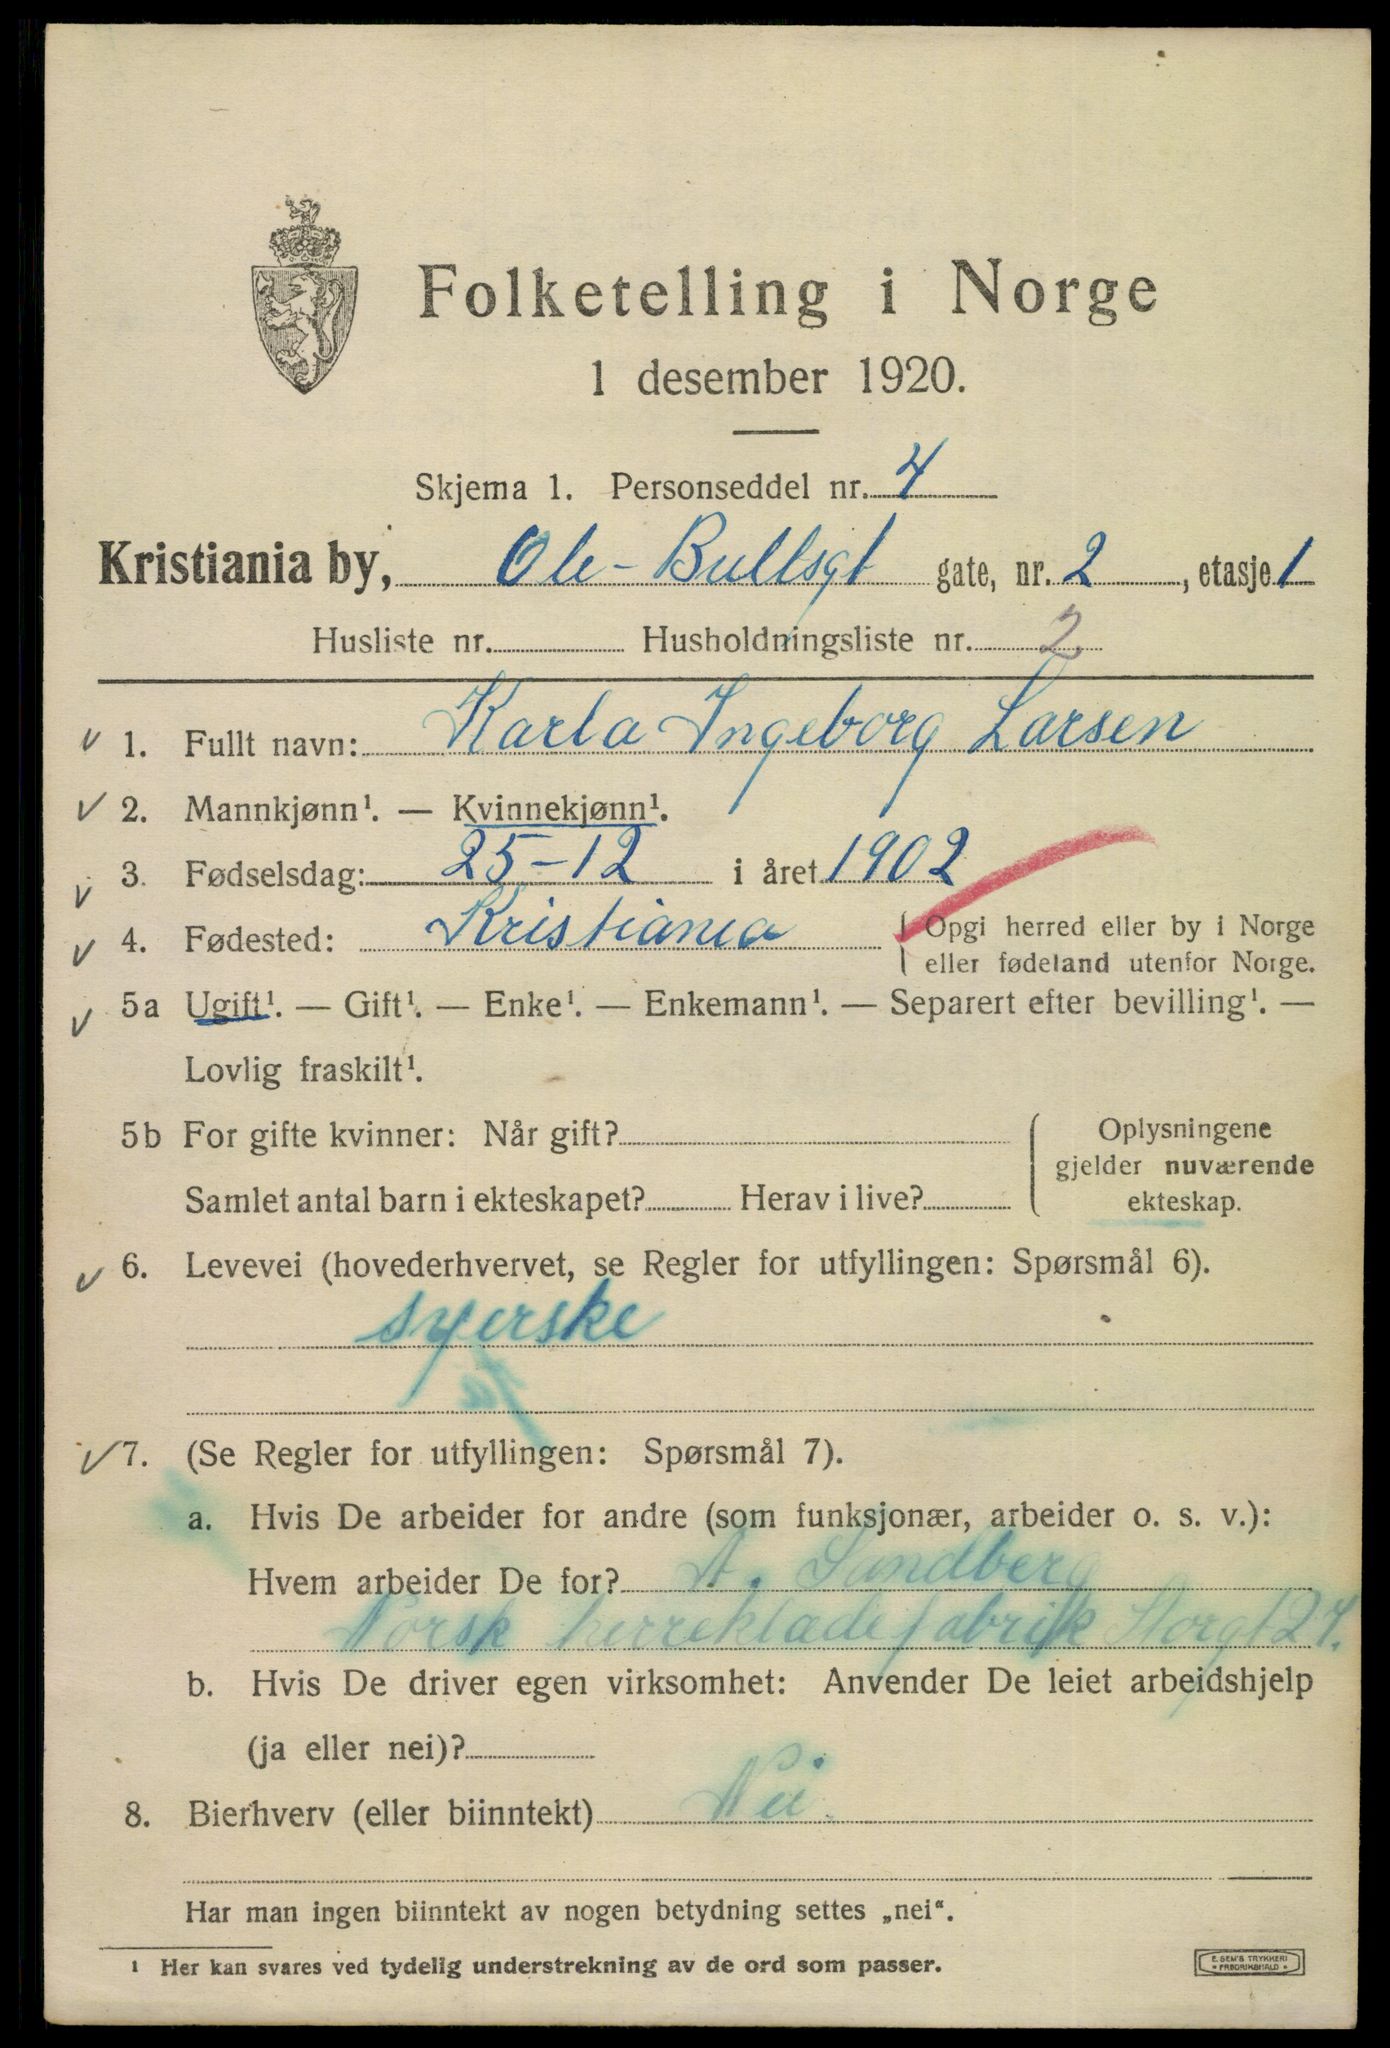 Folketelling i Norge
1 desember 1920.
Skjema 1. Personseddel nr. 4
Kristiania by, Ole-Bullsgt gate, nr. 2, etasje 1
Husliste nr. Husholdningsliste nr. 2
1. Fullt navn: Karla Ingeborg Larsen
2. Mannkjønn¹. — Kvinnekjønn¹.
3. Fødselsdag: 25-12 i året 1902
4. Fødested: Kristiania { Opgi herred eller by i Norge
eller fødeland utenfor Norge.
5a Ugift¹. — Gift¹. — Enke¹. — Enkemann¹. — Separert efter bevilling¹. —
Lovlig fraskilt¹.
5b For gifte kvinner: Når gift?
Samlet antal barn i ekteskapet? Herav i live?
Oplysningene
gjelder nuværende
ekteskap.
6. Levevei (hovederhvervet, se Regler for utfyllingen: Spørsmål 6).
syerske
7. (Se Regler for utfyllingen: Spørsmål 7).
a. Hvis De arbeider for andre (som funksjonær, arbeider o. s. v.):
Hvem arbeider De for? A. Sandberg
Norsk herreklædefabrik Storgt 27.
b. Hvis De driver egen virksomhet: Anvender De leiet arbeidshjelp
(ja eller nei)?
8. Bierhverv (eller biinntekt) Nei
Har man ingen biinntekt av nogen betydning settes „nei“.
¹ Her kan svares ved tydelig understrekning av de ord som passer.
E. SEM'S TRYKKERI
• FREDRIKSHALD •